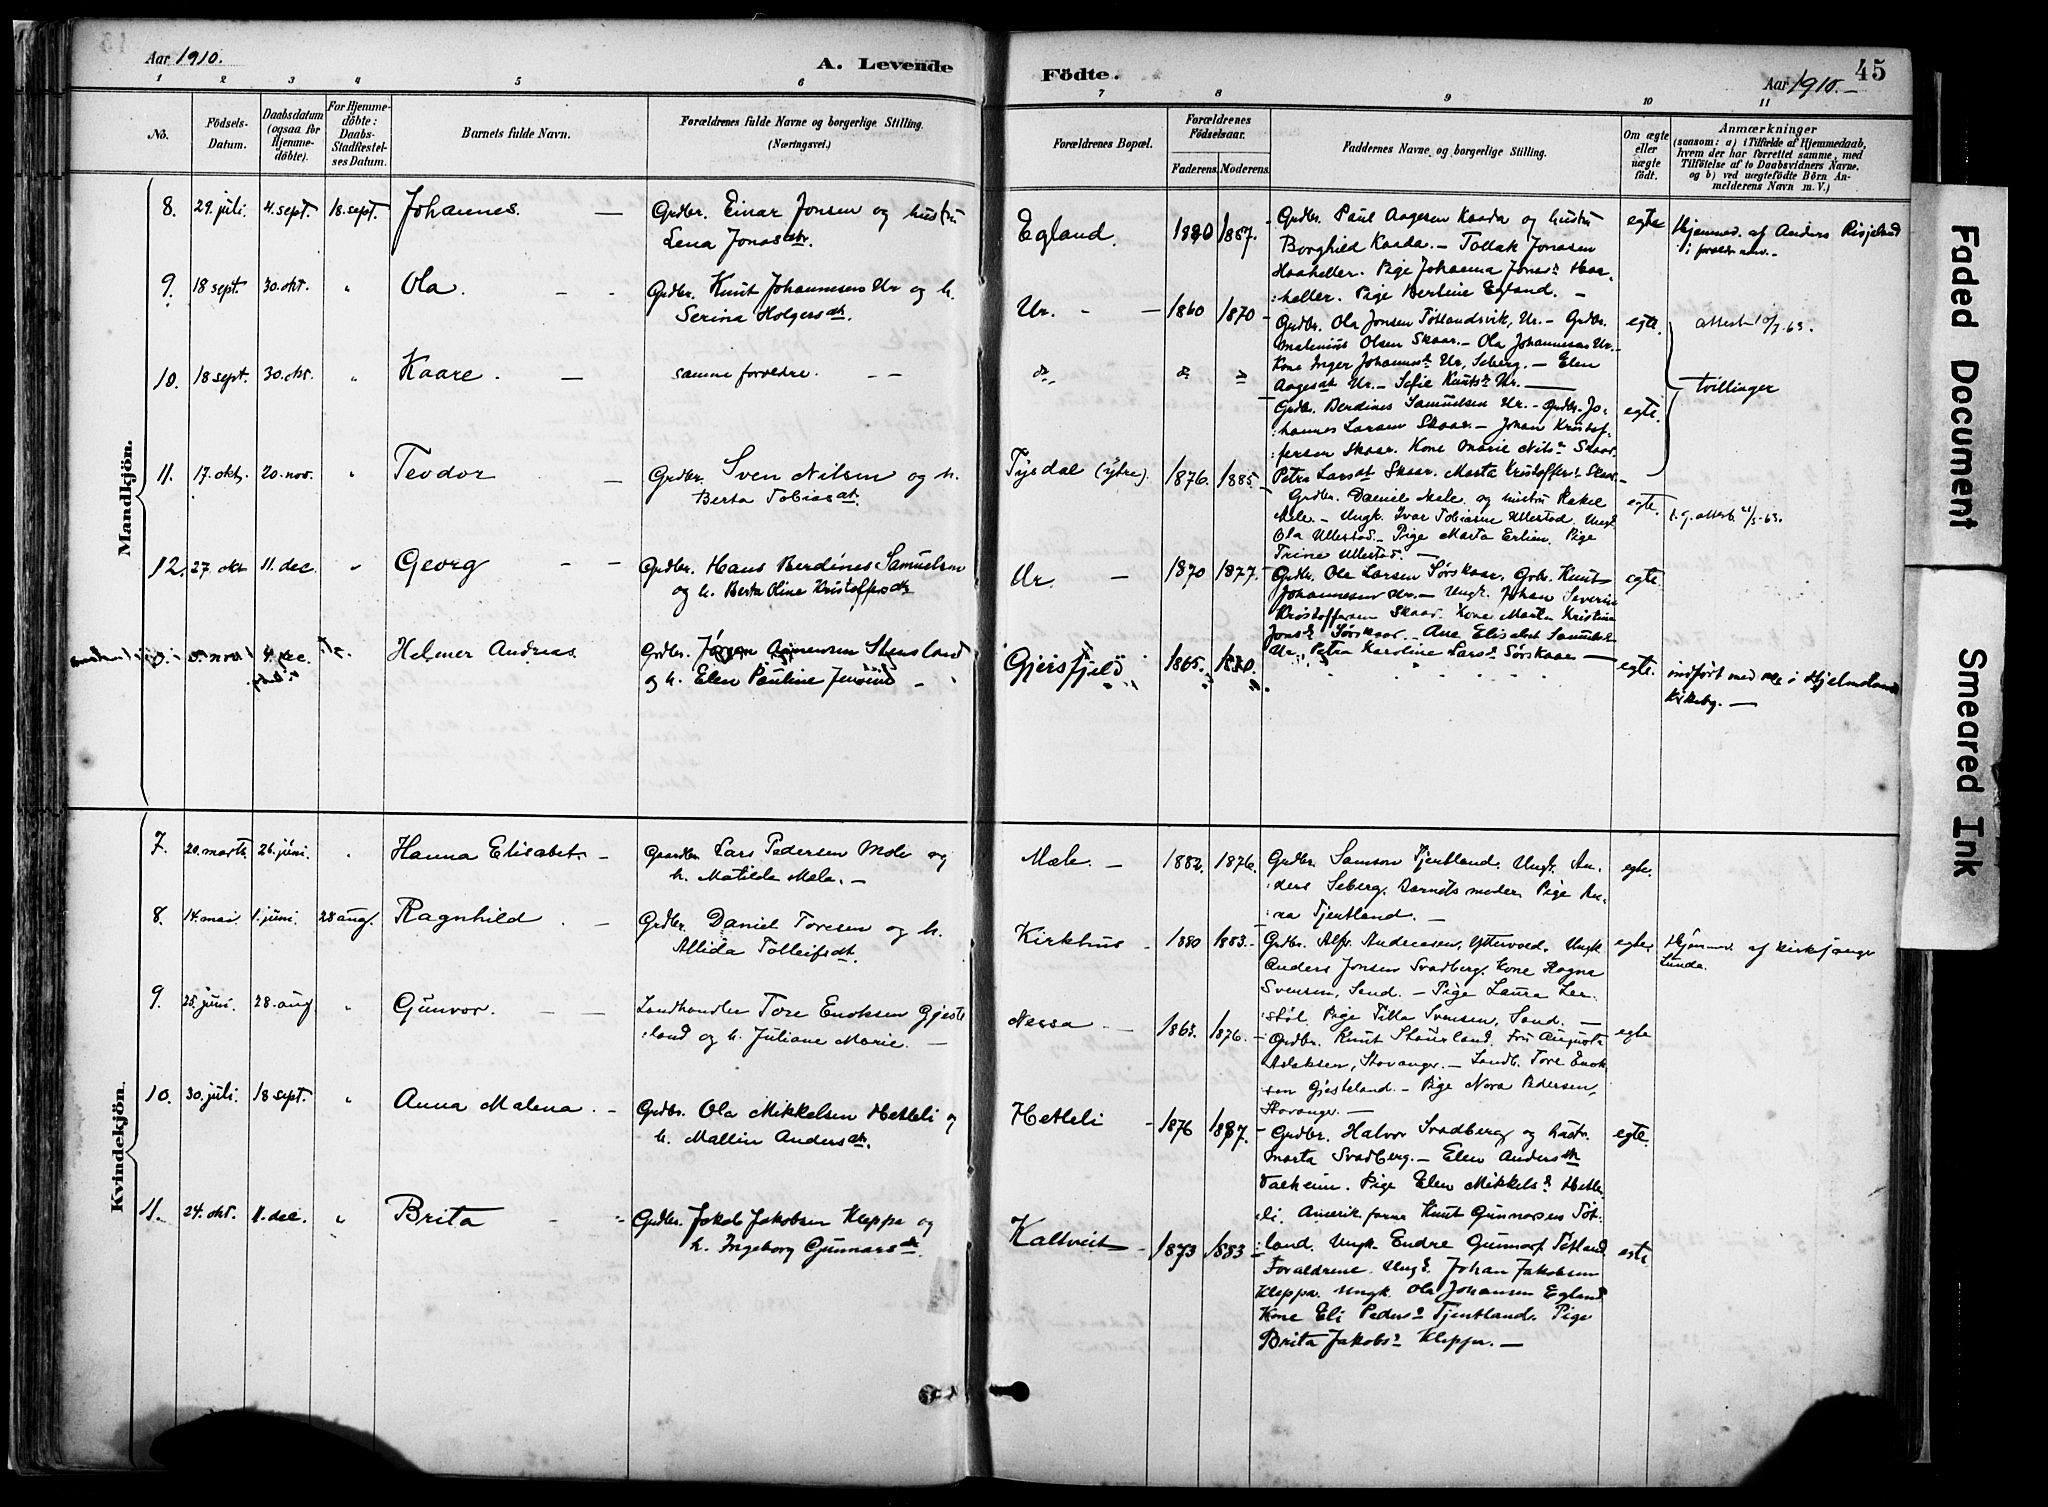 Aar 1910.
A. Levende
Födte.
Aar 1910.-
45
1 2 3 4 5 6 7 8 9 10 11
No.
Födsels-
Datum.
Daabsdatum
(ogsaa for
Hjemme-
döbte).
For Hjemme-
döbte:
Daabs-
Stadfæstel-
ses Datum.
Barnets fulde Navn.
Forældrenes fulde Navne og borgerlige Stilling.
(Næringsvei.)
Forældrenes Bopæl.
Forældrenes
Födselsaar.
Faderens. Moderens.
Faddernes Navne og borgerlige Stilling.
Om ægte
eller
uægte
födt.
Anmærkninger
(saasom: a) i Tilfælde af Hjemmedaab,
hvem der har forrettet samme, med
Tilföielse af to Daabsvidners Navne.
og b) ved uægtefödte Börn An-
melderens Navn m. V.)
Mandkjön.
8. 29. juli 4. sept. 18. sept. Johannes. —
Grdbr. Einar Jonsen og hustru
Lena Jonasdtr.
Egland. 1880 1887.
Grdbr. Paul Aagesen Kaada og hustru
Borghild Kaada. — Tollak Jonasen
Haaheller. Pige Johanna Jonsd. Haa-
heller. Pige Bertine Egland. —
egte
Hjemmed. af Anders Risjeland
9. 18 sept. 30. okt. " Ola. - -
Grdbr. Knut Johannesen Ur og h.
Serina Holgersdtr.
Ur. - — 1860 1870
Grdbr. Ola Jonsen Tøtlandsvik, Ur. — Grdbr.
Matenius Olsen Skaar. — Ola Johannesen Ur. —
Kone Inger Johannesd. Ur, Seberg. — Elen
Aagesdtr Ur. — Sofie Knutsd. Ur. —
egte.
attest 10/7-63.
10. 18 sept. 30. okt. " Kaare. —
samme forældre. - -
do. do. do.
Grdbr. Berdines Samuelsen Ur. — Grdbr. Jo-
hannes Larsen Skaar. — Johan Kristof-
fersen Skaar. Kone Marie Nilsd. Skaar.
Petra Larsdt Skaar. Marta Kristoffersd. Skaar. —
egte.
tvillinger
11. 17. okt. 20. nov. " Teodor —
Grdbr. Sven Nilsen og h.
Berta Tobiasdt.
Tysdal (ytre). 1876. 1885.
Grdbr. Daniel Mele og hustru Rakel
Mele. — Ungk. Ivar Tobiasen Ullestad. Ungk.
Ola Ullestad. — Pige Marta Erlien. Pige
Trine Ullestad. —
egte.
12. 27 okt 11. dec. " Georg - -
Grdbr. Hans Berdines Samuelsen
og h. Berta Oline Kristoffersdtr
Ur. — 1870 1877.
Grdbr. Ola Larsen Sørskaar. Grdbr. Knut
Johannesen Ur. — Ungk. Johan Severin
Kristoffersen Skaar. Kone Marta Kristine
Jonsd. Sørskaar. — Ane Elisabet Samuelsd.
Ur. Petra Karoline Larsd. Sørskaar —
egte.
5. nov. 4. dec. Helmer Andreas
Grdbr. Stensland
og h. Elen Pauline
Gjeisfjeld 1865. 1880.
egte.
indført med No. i Hjelmeland
Kirkebog. —
Kvindekjön.
7. 20. marts. 26. juni. " Hanna Elisabet. —
Gaardbr. Lars Pedersen Mele og
h. Matilde Mele. —
Mele. — 1882. 1876.
Grdbr. Samson Tjentland. Ungk. An-
ders Seberg. Barnets moder. Pige An-
na Tjentland. —
egte.
8. 14. mai 1. juni. 28 aug. Ragnhild. —
Grdbr. Daniel Toresen og h.
Allida Tolleifsdt.
Kirkhus - 1880 1883.-
Grdbr. Alfr. Andreasen, Ytterøed. Ungk.
Anders Jonsen Svadberg, Kone Ragna
Svensen, Sand. — Pige Laura Lær-
støl. Pige Tilla Svensen, Sand. —
egte.
Hjemmed. af kirkesanger
Lunde.
9. 25. juni. 28. aug. " Gunvor. - -
Landhandler Tore Enoksen Gjeste-
land og h. Juliane Marie. —
Nessa - — 1863. 1876.
Grdbr. Knut Staurland. Fru Augusta
Aslaksen, Stavanger. — Landh. Tore Enok-
sen Gjesteland. — Pige Nora Pedersen,
Stavanger. —
egte
10. 30. juli. 18 sept. " Anna Malena. —
Grdbr. Ola Mikkelsen Hetleli og
h. Mallin Andersdtr.
Hetleli - 1876 1887.
Grdbr. Halvor Svadberg og hustr.
Marta Svadberg. — Elen Andersdtr
Valheim. Pige Elen Mikkelsd. Hetle-
li. Amerik. farne Knut Gunnarsen Tøt-
land. Ungk. Endre Gunnarsf. Tøtland
egte.
11. 24. okt. 11. dec. " Brita - "
Grdbr. Jakob Jakobsen Kleppa og
h. Ingeborg Gunnarsdtr.
Kaltveit - 1873 1883
Forældrene. Ungk. Johan Jakobsen
Kleppa. Ungk. Ola Johansen Egland
Kone Eli Pedersd. Tjentland. Pige
Brita Jakobsd. Kleppa. —
egte.
Faded Document
Smeared Ink